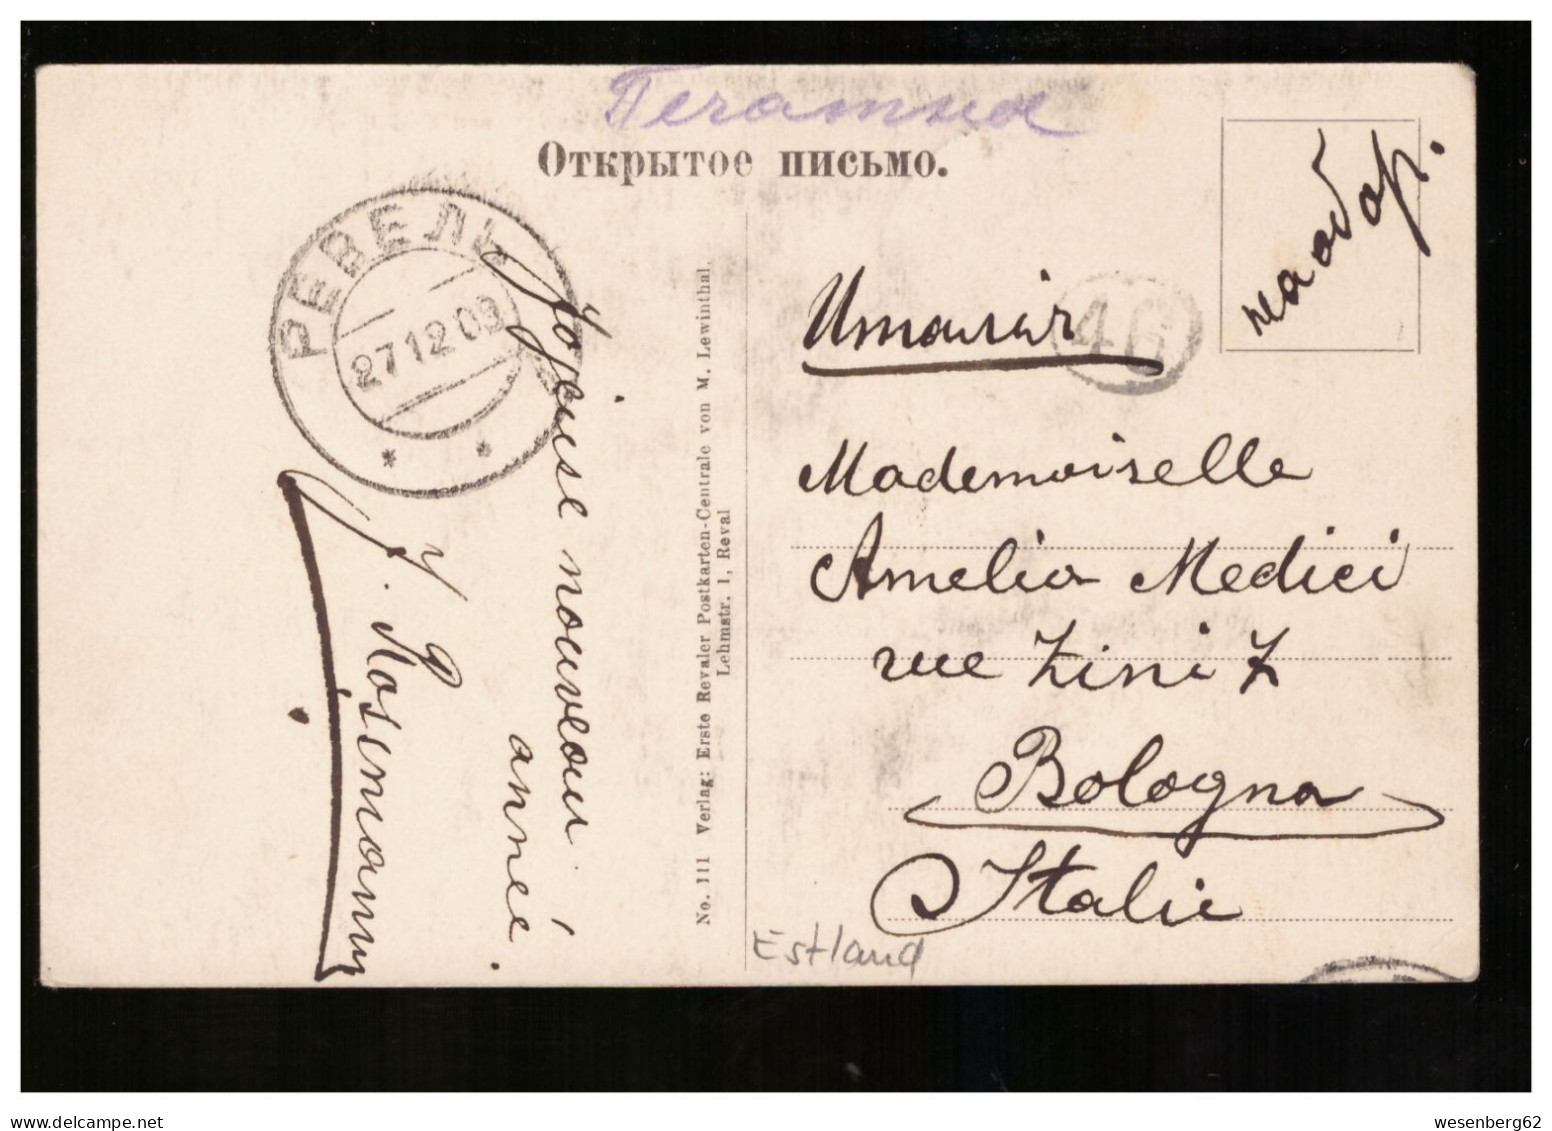 Печатная
Открытое письмо.
на обор.
РЕВЕЛЬ
27 12 09
Joyeuse nouveau
année
J. Rosenmann
No. 111 Verlag: Erste Revaler Postkarten-Centrale von M. Lewinthal,
Lehmstr. 1, Reval
Италія
46
Mademoiselle
Amelia Medici
rue Zini 7
Bologna
Italie
Estland
wesenberg62